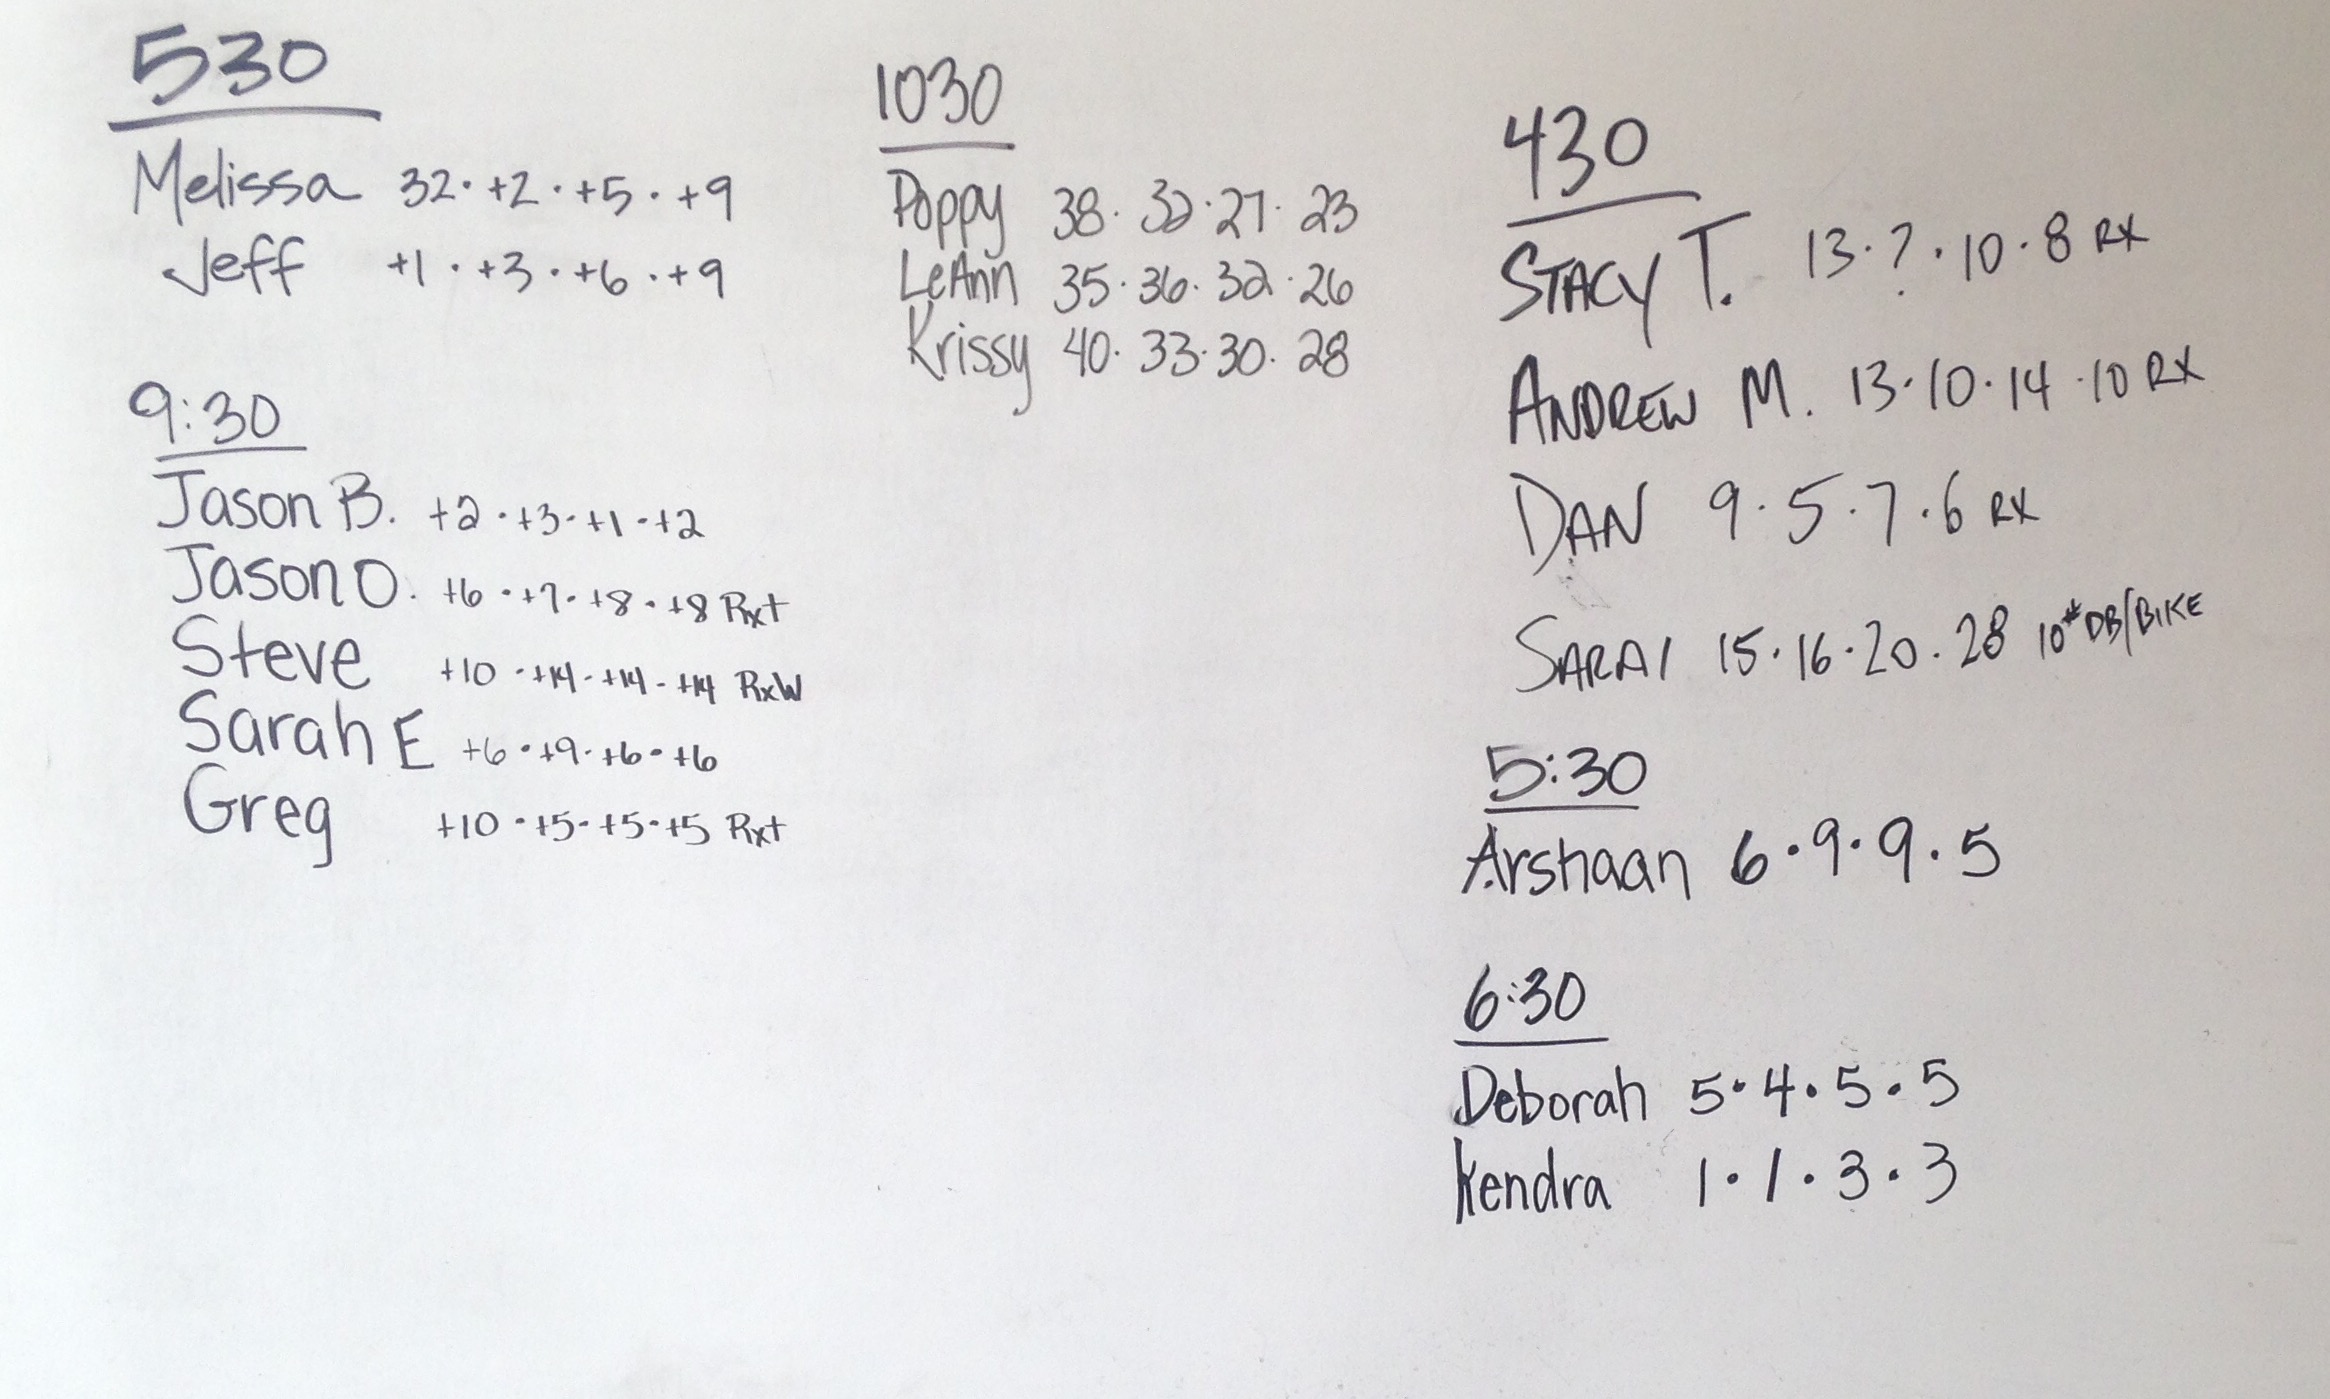 530
Melissa 32 · +2 · +5 · +9
Jeff +1 · +3 · +6 · +9
9:30
Jason B. +2 · +3 · +1 · +2
Jason O. +6 · +7 · +8 · +8 Rx+
Steve +10 · +14 · +14 · +14 RxW
Sarah E +6 · +9 · +6 · +6
Greg +10 · +5 · +5 · +5 Rx+
1030
Poppy 38 · 32 · 27 · 23
LeAnn 35 · 36 · 32 · 26
Krissy 40 · 33 · 30 · 28
430
STACY T. 13 · ? · 10 · 8 RX
ANDREW M. 13 · 10 · 14 · 10 RX
DAN 9 · 5 · 7 · 6 RX
SARAI 15 · 16 · 20 · 28 10# DB/BIKE
5:30
Arshaan 6 · 9 · 9 · 5
6:30
Deborah 5 · 4 · 5 · 5
Kendra 1 · 1 · 3 · 3